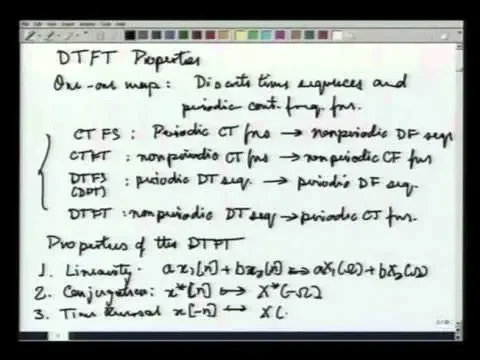 DTFT Properties
One-one map: Discrete time sequences and
periodic cont. freq. fns.
CTFS: Periodic CT fns → nonperiodic DF seq.
CTFT: nonperiodic CT fns → nonperiodic CF fns
DTFS: periodic DT seq. → periodic DF seq.
(DFT)
DTFT: nonperiodic DT seq. → periodic CF fns.
Properties of the DTFT
1. Linearity: ax₁[n]+bx₂[n] ↔ aX₁(Ω)+bX₂(Ω)
2. Conjugation: x*[n] ↔ X*(-Ω)
3. Time Reversal x[-n] ↔ X(